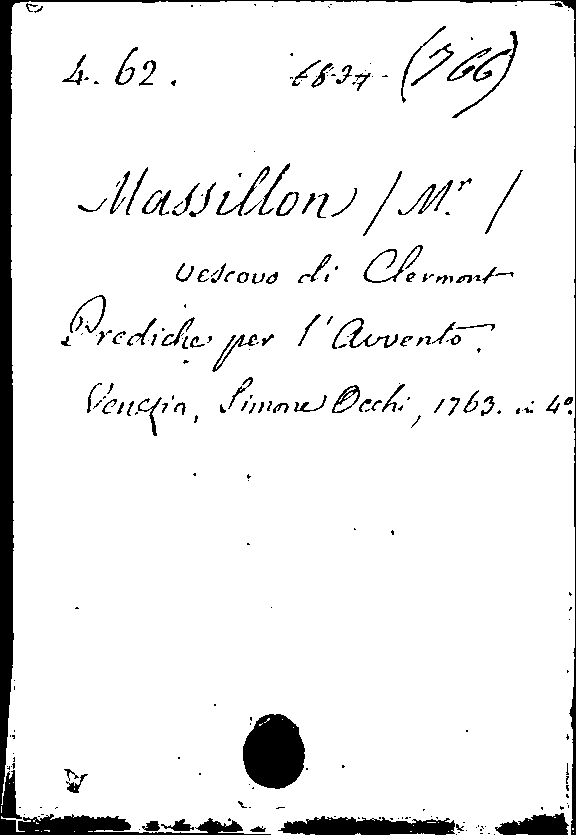 4. 62. (766)
Massillon / M.r /
vescovo di Clermont
Prediche per l'Avvento.
Venezia, Simone Occhi, 1763. in 4º.